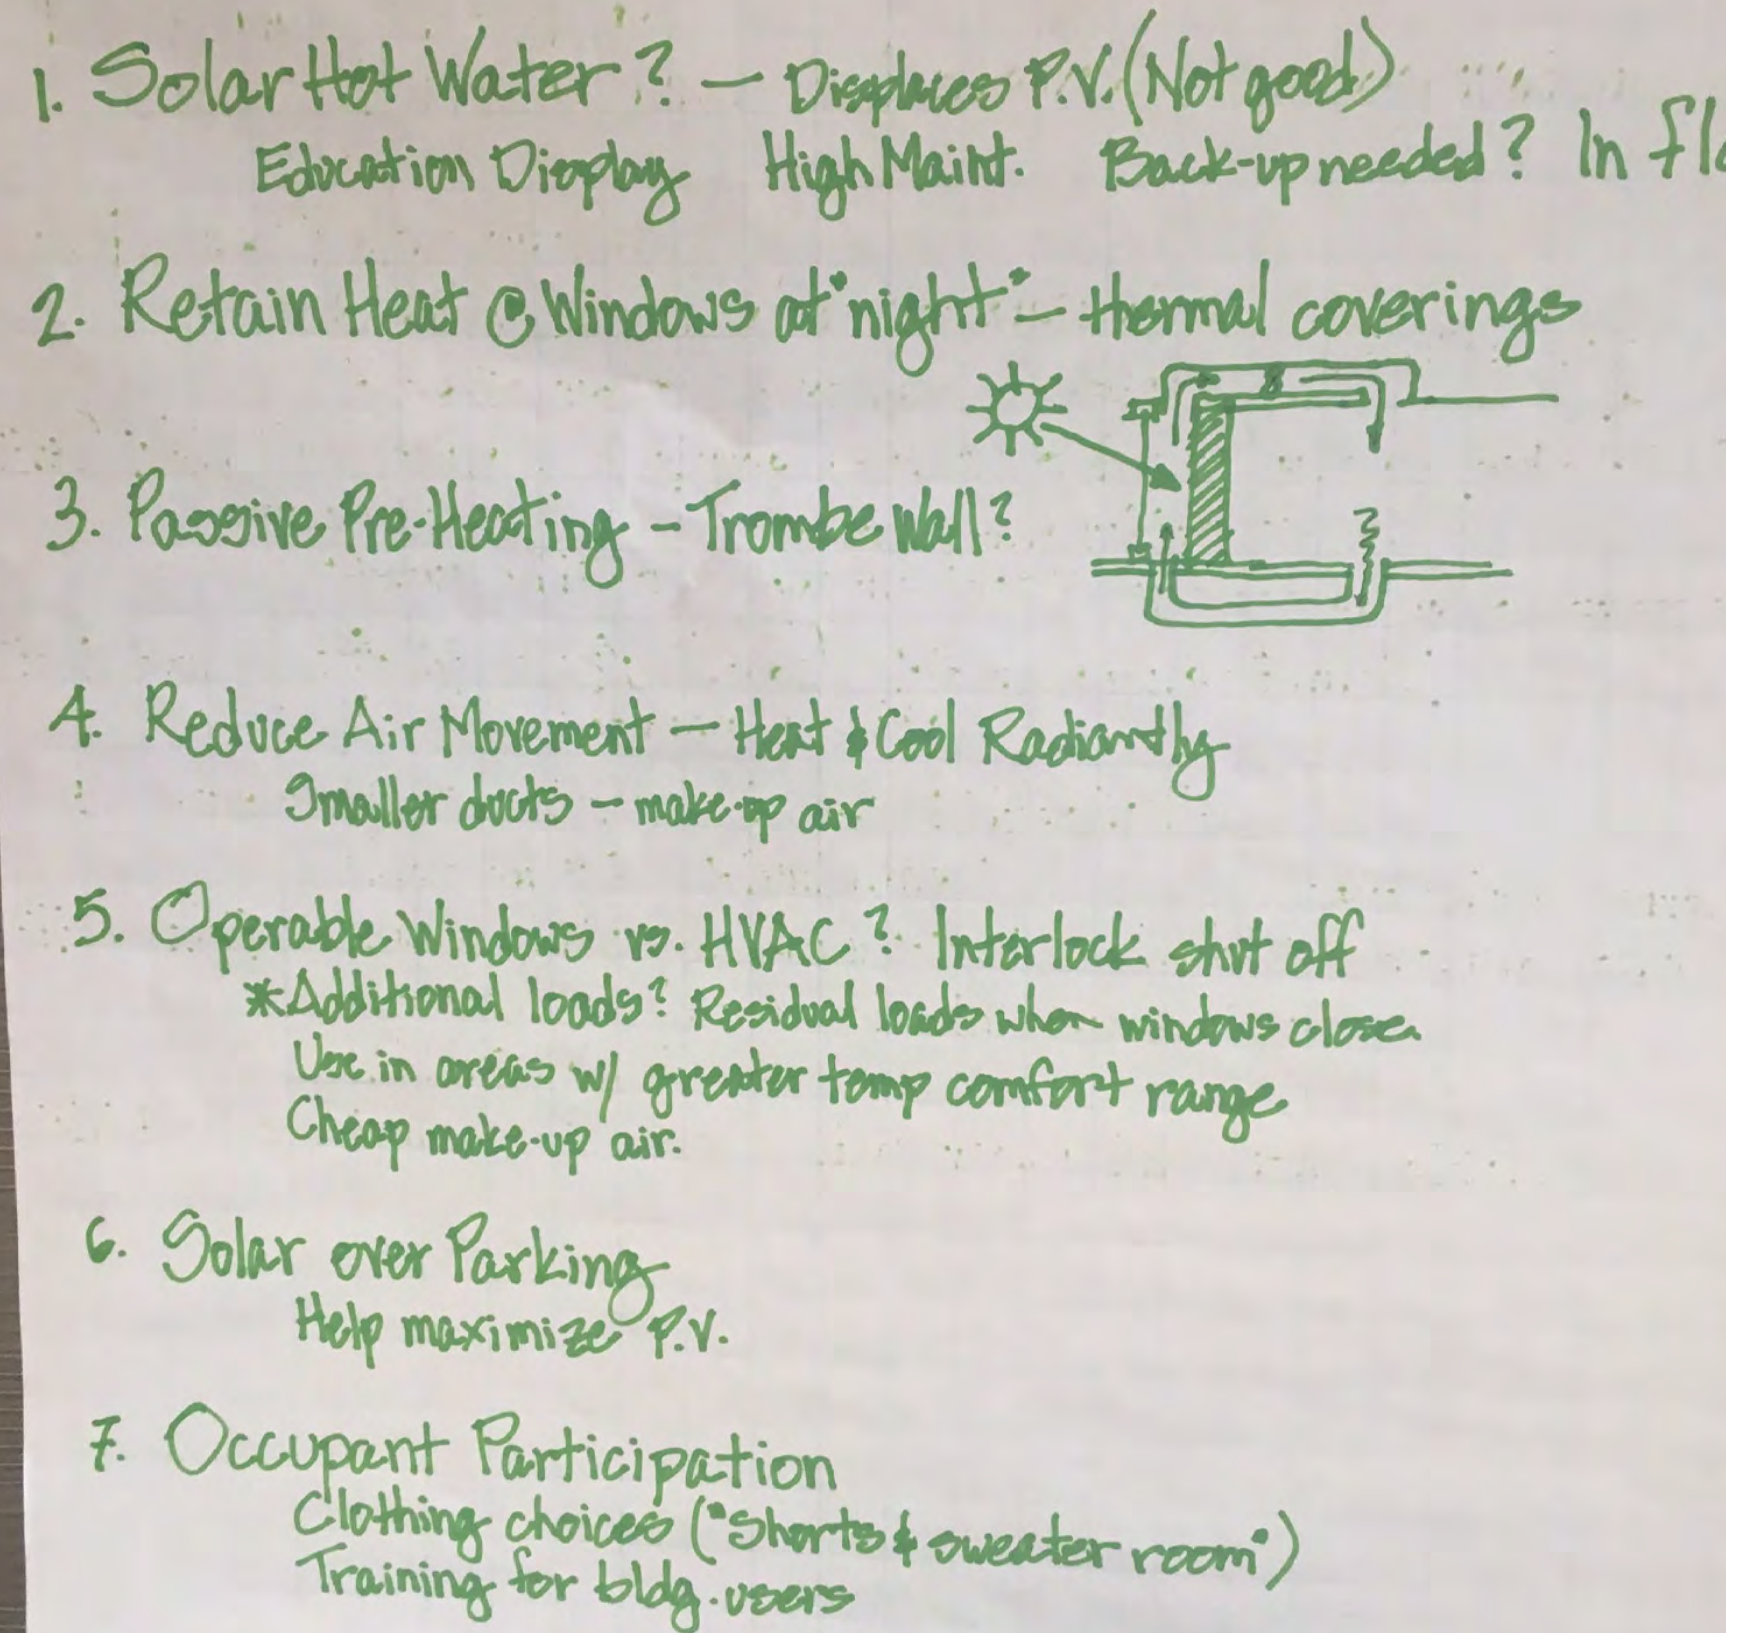 1. Solar Hot Water? – Displaces P.V. (Not good)
Education Display High Maint. Back-up needed? In
2. Retain Heat @ Windows at "night" – thermal coverings
3. Passive Pre-Heating – Trombe Wall?
4. Reduce Air Movement – Heat & Cool Radiantly
Smaller ducts – make-up air
5. Operable Windows vs. HVAC? Interlock shut off
*Additional loads? Residual loads when windows close.
Use in areas w/ greater temp comfort range
Cheap make-up air.
6. Solar over Parking
Help maximize P.V.
7. Occupant Participation
Clothing choices ("Shorts & sweater room")
Training for bldg. users